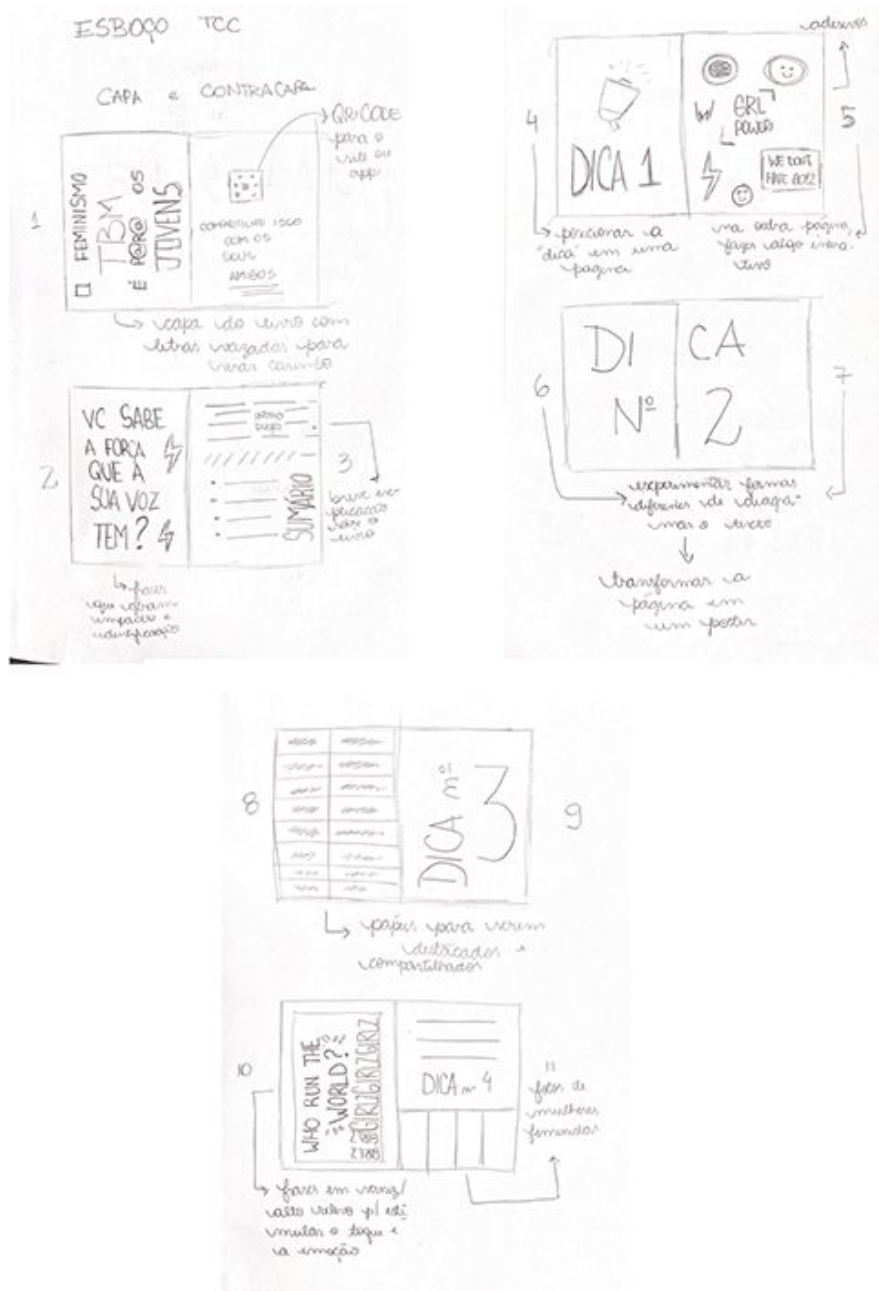 ESBOÇO TCC
CAPA e CONTRACAPA
QR CODE
para o
site ou
app
1
O FEMINISMO
TBM
É P@R@ OS
JOVENS
COMPARTILHE ISSO
COM OS
SEUS
AMIGOS
capa do livro com
letras vazadas para
virar carimbo
2
VC SABE
A FORÇA
QUE A
SUA VOZ
TEM?
INTRO
DUÇÃO
SUMÁRIO
3
breve ex-
plicação
sobre o
livro
frases
que geram
impacto e
identificação
adesivos
4
DICA 1
GRL
POWER
WE DON'T
5
posicionar a
"dica" em uma
página
na outra página,
fazer algo intera-
tivo
6
DI CA
Nº 2
7
experimentar formas
diferentes de diagra-
mar o texto
transformar a
página em
um poster
8
DICA
3
9
papéis para serem
destacados e
compartilhados
10
WHO RUN THE
WORLD?
GIRLZGIRLZGIRLZ
DICA nº 4
11
fotos de
mulheres
feministas
frases em verniz/
alto relevo p/ estí
mular o toque e
a emoção